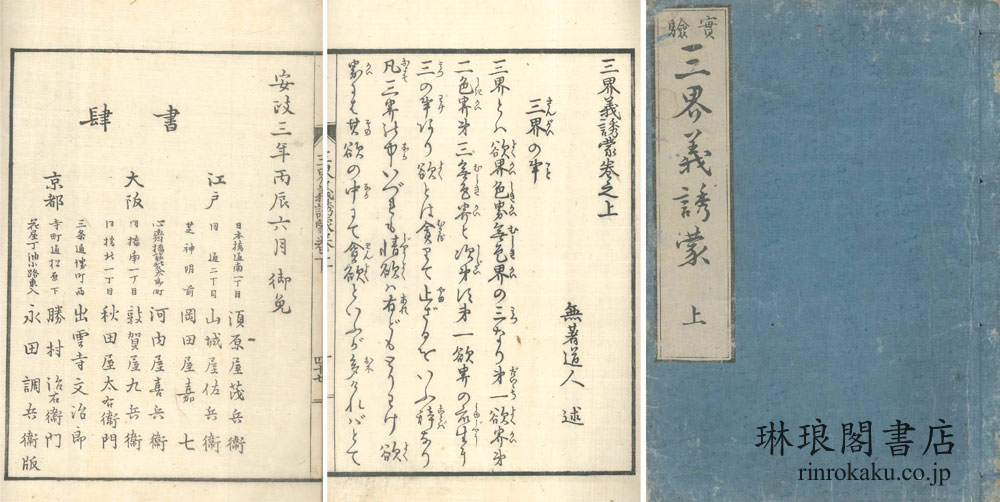 實驗
三界義誘蒙 上
三界義誘蒙巻之上
無著道人 述
三界の事
三界とハ欲界色界無色界の三なり第一欲界第
二色界第三無色界と次第す第一欲界の衆生に
三の事あり欲とは貪りて止ざるをいふ
凡三界の中いづれも情欲ハ有どもとりわけ欲
其欲の中にて貪欲といふが多けれバとて
安政三年丙辰六月御免
書肆
江戸
日本橋通南一丁目 須原屋茂兵衛
同 通二丁目 山城屋佐兵衛
芝神明前 岡田屋嘉七
大阪
河内屋喜兵衛
同橋南一丁目 敦賀屋九兵衛
同橋北一丁目 秋田屋太右衛門
京都
三条通堺町西 出雲寺文治郎
寺町通松原下 勝村治右衛門
花屋丁油小路東入 永田調兵衛版
琳琅閣書店
rinrokaku.co.jp